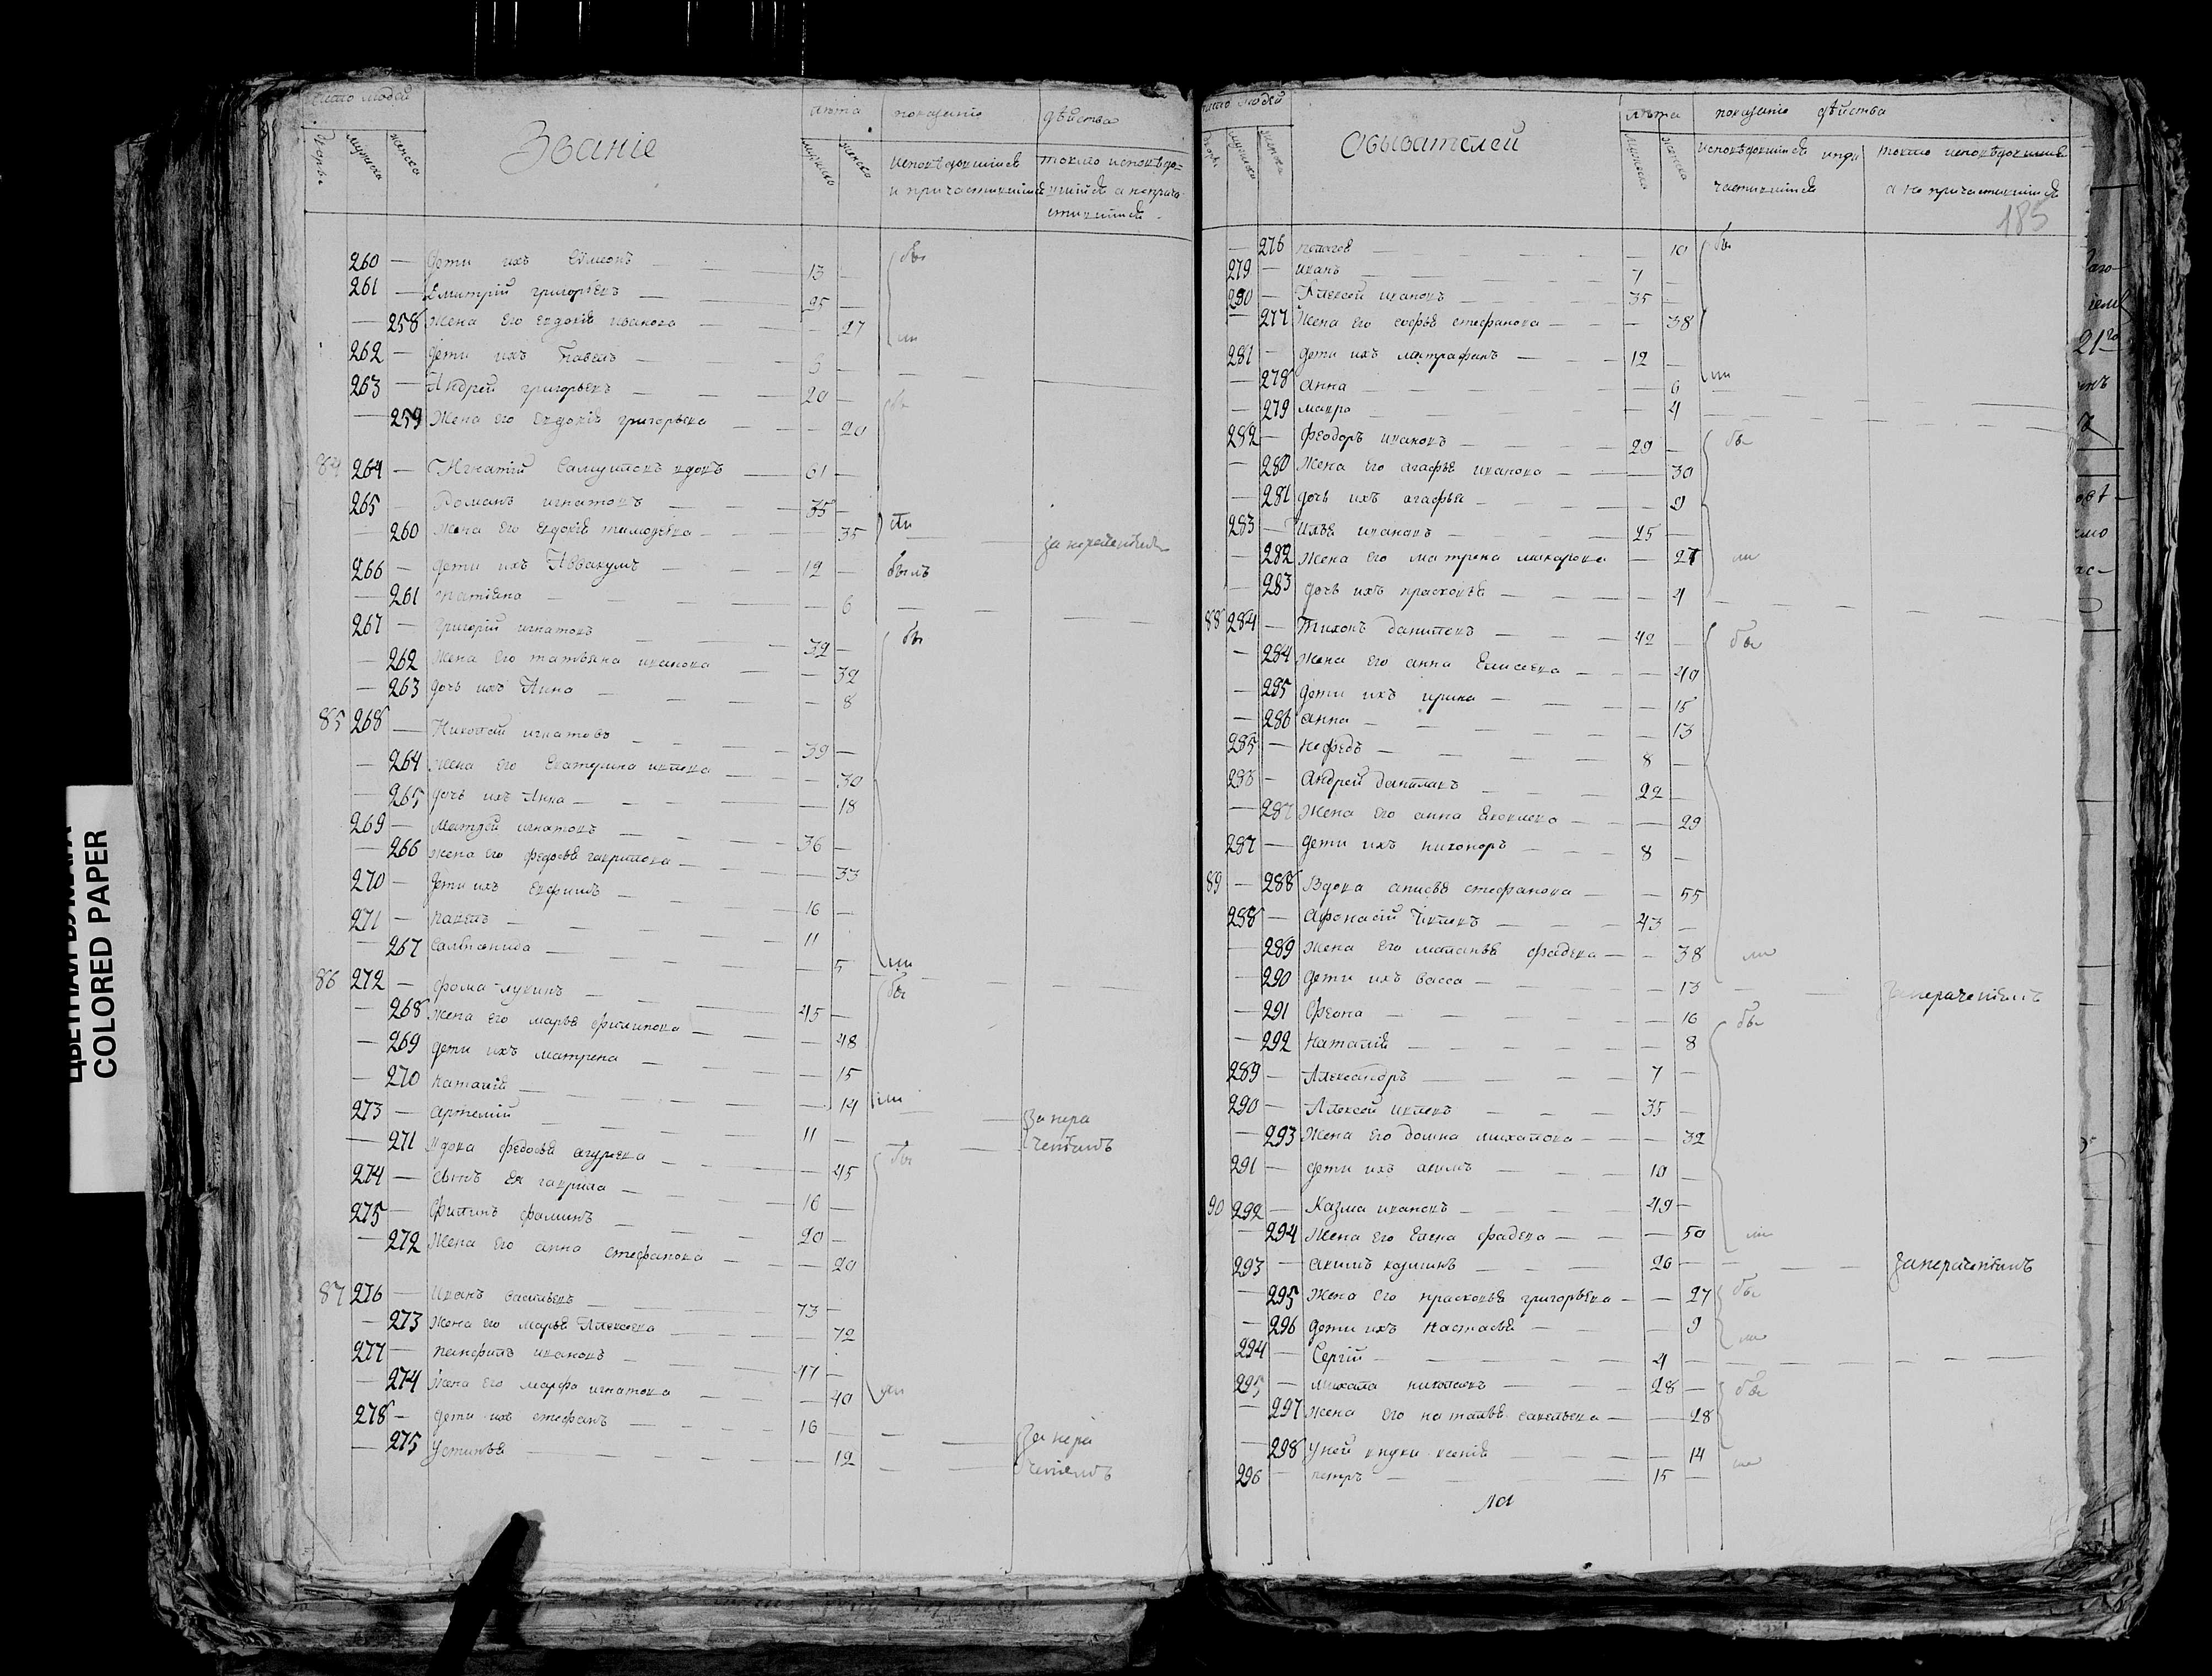 число людей
Дворовъ
мужеска
женска
Званіе
лѣта
мужеска
женска
показаніе дѣйства
исповѣдовшіися и причастившіися
токмо исповѣдовшіися а непричастившіися
260 — дети ихъ Симеонъ — 13 — бы
261 — Дмитрій григорьевъ — 25 —
— 258 жена его евдокія иванова — 27 ли
262 — дети ихъ Павелъ — 3 —
263 — Андрей григорьевъ — 20 — бы
— 259 Жена его Евдокія григорьева — 20
84 264 — Игнатій Самуиловъ вдовъ — 61 —
265 — Романъ игнатовъ — 35 —
— 260 жена его евдокія тимофѣева — 35 ли
266 — дети ихъ Аввакумъ — 12 — былъ
— 261 татіяна — 6
267 — григорій игнатовъ — 32 — бы
— 262 жена его татьяна иванова — 32
— 263 дочь ихъ Анна — 8
85 268 — Николай игнатовъ — 39 —
— 264 жена его Екатерина ивлева — 30
— 265 дочь ихъ Анна — 18
269 — Матфей игнатовъ — 36 —
— 266 жена его федосья гаврилова — 33
270 — дети ихъ Евфимъ — 16 —
271 — павелъ — 11 —
— 267 Саломонида — 5 ли
86 272 — фома лукинъ — 45 — бы
— 268 жена его марья филипова — 48
— 269 дети ихъ матрена — 15
— 270 наталія — 14 ли
273 — артемій — 11 — За нера
— 271 вдова федосья — 45 бы ченіемъ
274 — сынъ ея гаврила — 16 —
275 — Филипъ фоминъ — 20 —
— 272 жена его анна стефанова — 20
87 276 — Иванъ васильевъ — 73 —
— 273 жена его марья Алексеева — 72
277 — панфилъ ивановъ — 47 —
— 274 жена его марфа игнатова — 40 ли
278 — дети ихъ стефанъ — 16 — За нера
— 275 устинья — 12 ченіемъ
число людей
Обывателей
лѣта
мужеска
женска
показаніе дѣйства
исповѣдовшіися и при частившіися
токмо исповѣдовшіися а не причастившіися
185
— 276 пелагея — 10 бы
279 — иванъ — 7 —
280 — Алексей ивановъ — 35 —
— 277 Жена его софья стефанова — 38
281 — дети ихъ митрафанъ — 12 —
— 278 анна — 6 ли
— 279 мавра — 4
282 — феодоръ ивановъ — 29 — бы
— 280 Жена его агафья иванова — 30
— 281 дочь ихъ агафья — 9
283 — Илья ивановъ — 25 —
— 282 Жена его матрена макарова — 27 ли
— 283 дочь ихъ прасковья — 4
88 284 — Тихонъ даниловъ — 42 — бы
— 284 Жена его анна Елисеева — 40
— 285 дети ихъ ирина — 15
— 286 анна — 13
285 — нефедъ — 8 —
286 — Андрей даниловъ — 22 —
— 287 Жена его анна Яковлева — 29
287 — дети ихъ никоноръ — 8 —
89 — 288 Вдова анисья стефанова — 55
288 — Афонасій Ивлевъ — 43 —
— 289 Жена его маланья фадеева — 38 ли
— 290 дети ихъ васса — 13 За нераченіемъ
— 291 Феона — 10 бы
— 292 Наталія — 8
289 — Александръ — 7 —
290 — Алексей ивлевъ — 35 —
— 293 Жена его домна михайлова — 32
291 — дети ихъ акимъ — 10 —
90 292 — Казма ивановъ — 49 —
— 294 Жена его Елена фадеева — 50 ли
293 — акимъ казминъ — 20 — За нераченіемъ
— 295 Жена его прасковья григорьева — 27 бы
— 296 дети ихъ Настасья — 9 ли
294 — Сергій — 4 —
295 — михайла николаевъ — 28 — бы
— 297 жена его наталья савельева — 28
— 298 у ней внука ксенія — 14 ли
296 — петръ — 15 —